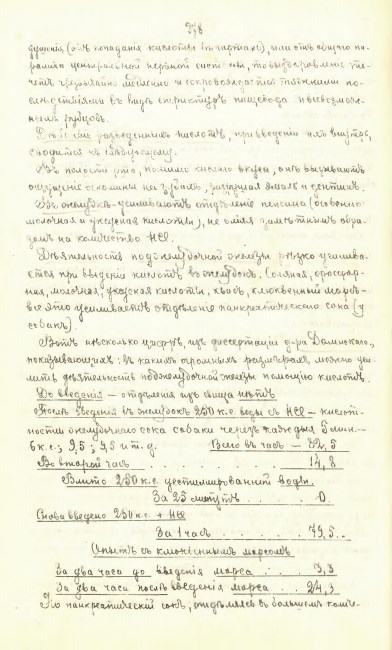 278
душенія (отъ попаданія кислоты въ гортань), или отъ общаго па-
ралича центральной нервной системы, то выздоровленіе те-
четъ чрезвычайно медленно и сопровождается тяжкими по-
слѣдствіями въ видѣ стриктуръ пищевода и всевозмож-
ныхъ рубцовъ.
Дѣйствіе разведенныхъ кислотъ, при введеніи ихъ внутрь,
сводится къ слѣдующему:
Въ полости рта, помимо кислаго вкуса, онѣ вызываютъ
ощущеніе оскомины на зубахъ, разрушая эмаль и дентинъ.
Въ желудкѣ усиливаютъ отдѣленіе пепсина (особенно
молочная и уксусная кислоты), не вліяя замѣтнымъ обра-
зомъ на количество HCl.
Дѣятельность поджелудочной железы рѣзко усилива-
ется при введеніи кислотъ въ желудокъ. (Соляная, фосфор-
ная, молочная, уксусная кислоты, квасъ, клюквенный морсъ—
все это усиливаетъ отдѣленіе панкреатическаго сока (у
собакъ).
Вотъ нѣсколько цифръ, изъ диссертаціи д-ра Долинскаго,
показывающихъ: въ какихъ огромныхъ размѣрахъ можно уси-
лить дѣятельность поджелудочной железы помощію кислотъ.
До введенія — отдѣленія изъ свища нѣтъ
Послѣ введенія въ желудокъ 250 к.с. воды съ HCl — кислот-
ности желудочнаго сока собаки черезъ каждыя 5 мин.—
6 к.с.; 9,5; 9,5 и т.д. Всего въ часъ — 82,5
Во второй часъ . . . . 14,8
Вмѣсто 250 к.с. дестиллированной воды.
За 25 минутъ . . . . 0.
Снова введено 250 к.с. + HCl
За 1 часъ . . . . 79,5
Опытъ съ клюквеннымъ морсомъ
За два часа до введенія морса . . . 3,3
За два часа послѣ введенія морса . . 24,3
Но панкреатическій сокъ, отдѣляясь въ большомъ коли-